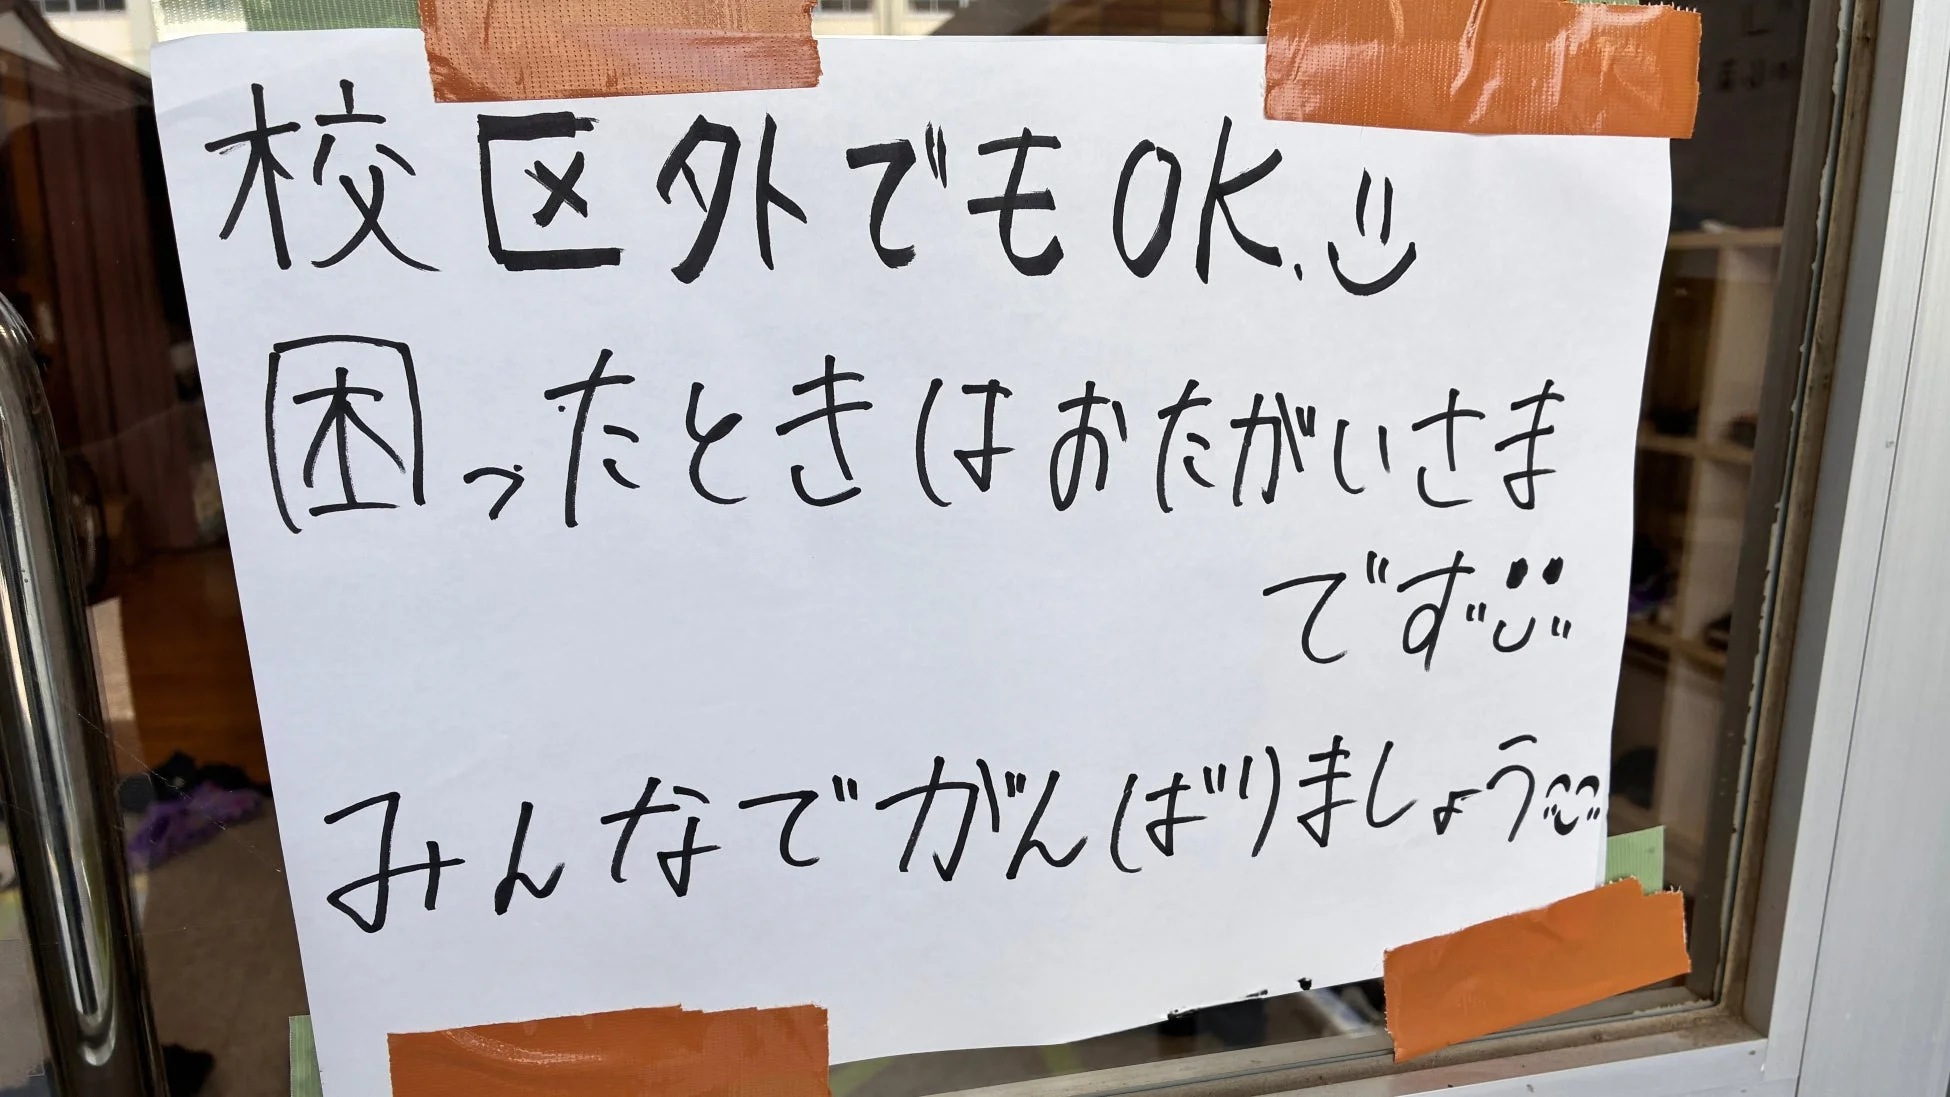 校区外でもOK.
困ったときはおたがいさま
です
みんなでがんばりましょう